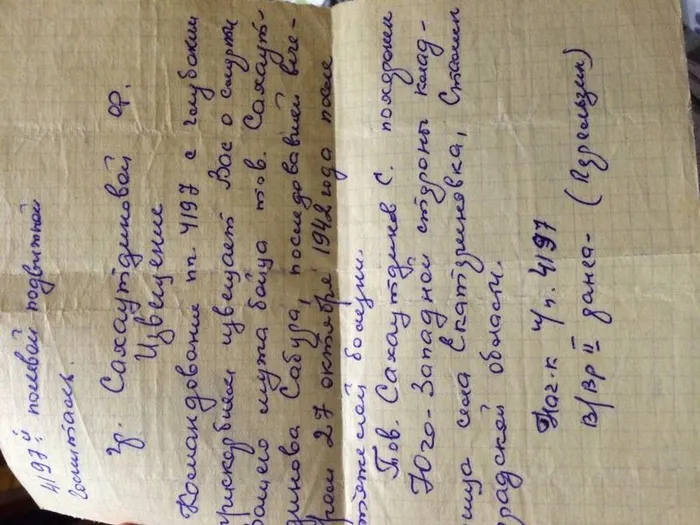 4197й полевой подвижной
Госпиталь.
Гр. Сахаутдиновой Ф.
Извещение
Командование пп. 4197 с глубоким
прискорбием извещает Вас о смерти
Вашего мужа бойца тов. Сахаут-
динова Сабура, последовавшей вече-
ром 27 октября 1942 года после
тяжелой болезни.
Тов. Сахаутдинов С. похоронен
Юго-Западной стороны клад-
бища села Екатериновка, Сталин
градской области.
Нач-к ч/п. 4197
В/вр II ранга-